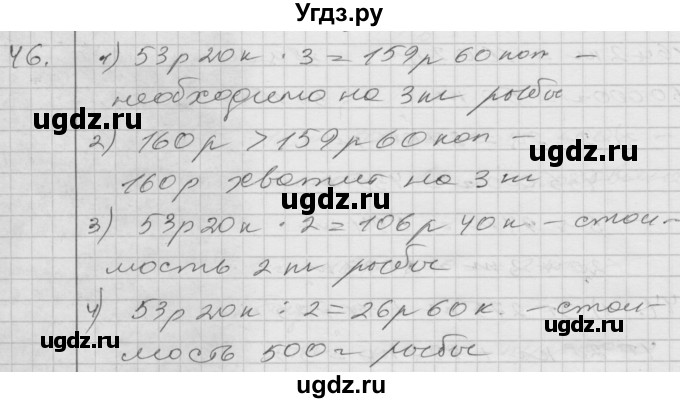 Угдз.ру
46. 1) 53р 20к · 3 = 159р 60коп –
необходимо на 3кг рыбы
ugdz.ru ugdz.ru
2) 160р > 159р 60коп –
ugdz.ru
160р хватит на 3кг
ugdz.ru
3) 53р 20к · 2 = 106р 40к – стои-
мость 2кг рыбы
ugdz.ru ugdz.ru
4) 53р 20к : 2 = 26р 60к. – стои-
ugdz.ru
мость 500г рыбы
ugdz.ru
ugdz.ru